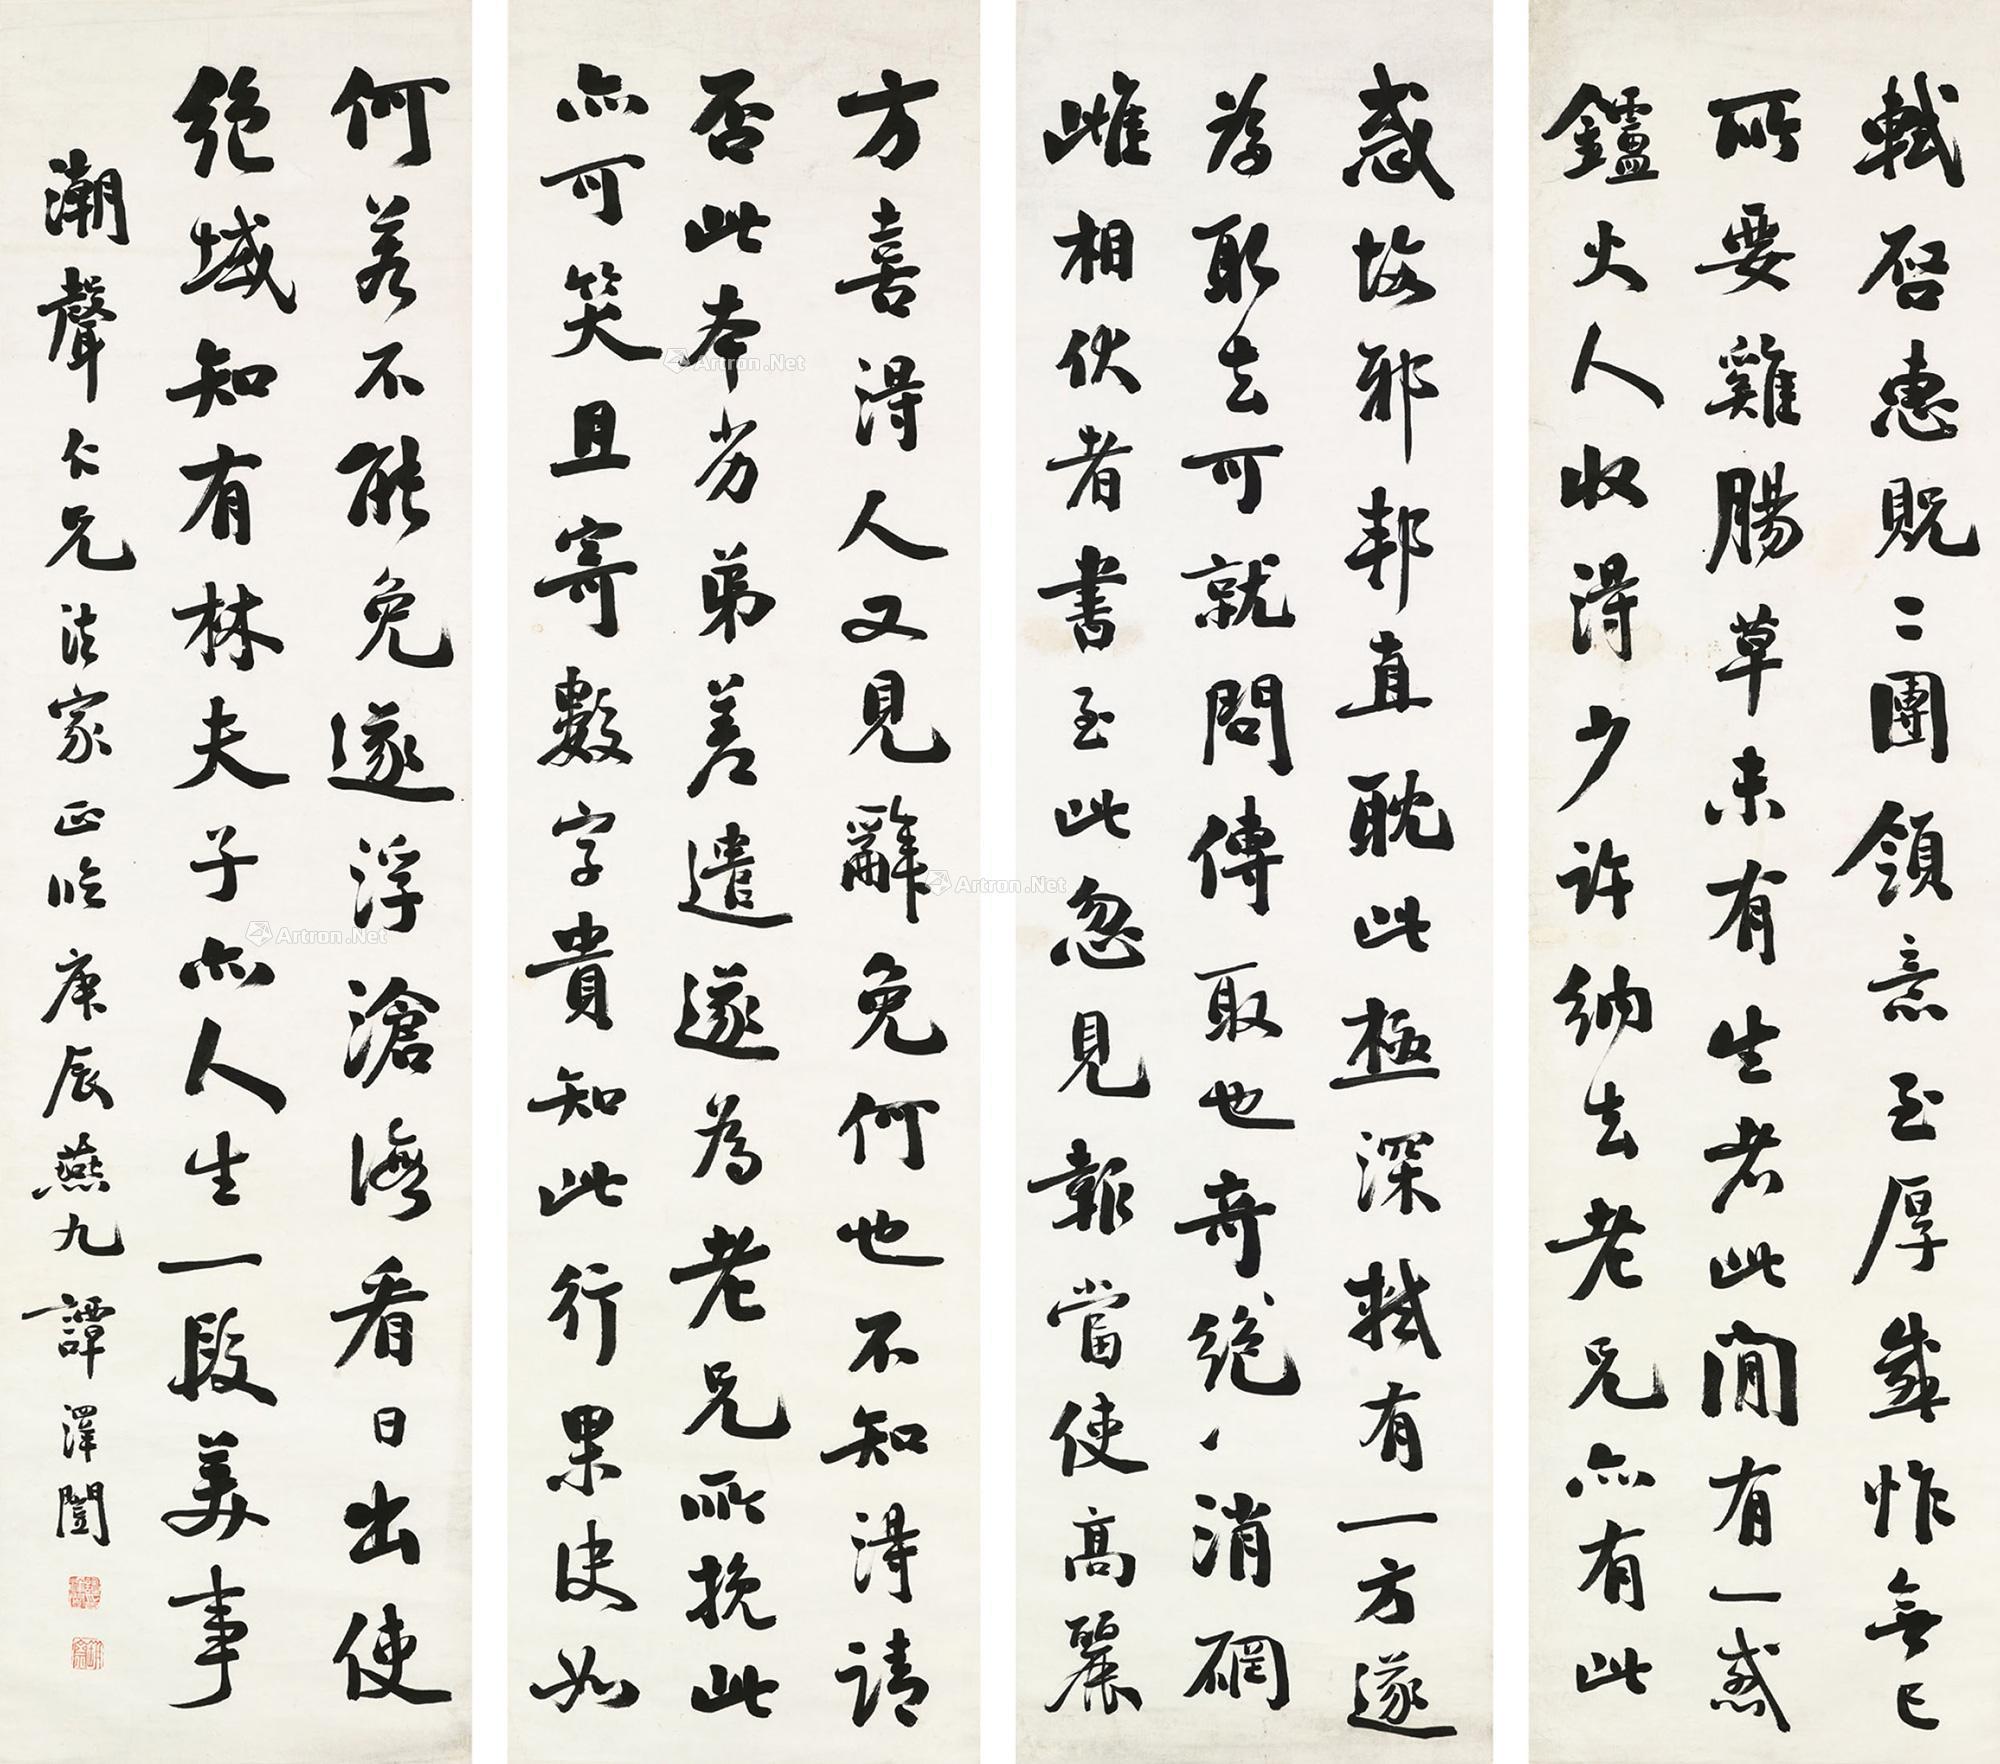 軾啓惠貺二團領意至厚感怍無已
所要雞腸草未有生者此間有一惑
鑪火人收得少許納去老兄亦有此
惑故邪邦直耽此極深軾有一方遂
為取去可就問傳取也奇絕消硇
雌相伏者書至此忽見報當使高麗
方喜得人又見辭免何也不知得請
否此本劣弟差遣遂為老兄所挽此
亦可笑且寄數字貴知此行果決如
何若不能免遂浮滄海看日出使
絕域知有林夫子亦人生一段美事
潮聲仁兄法家正臨庚辰燕九譚澤闓
Artron.Net
Artron.Net
Artron.Net